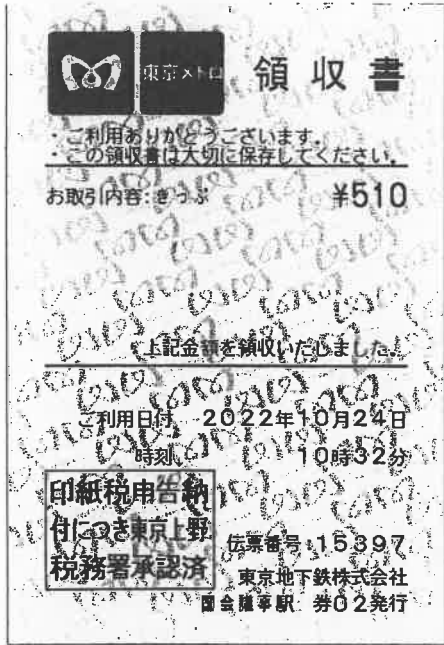 東京メトロ
領収書
・ご利用ありがとうございます。
・この領収書は大切に保存してください。
お取引内容:きっぷ ¥510
上記金額を領収いたしました。
ご利用日付 2022年10月24日
時刻 10時32分
印紙税申告納
付につき東京上野
税務署承認済
伝票番号:15397
東京地下鉄株式会社
国会議事駅 券02発行